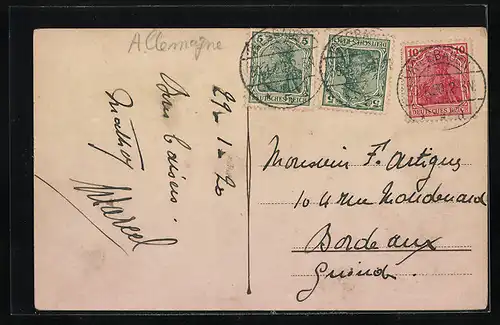 Allemagne
5 5
DEUTSCHES REICH
5 5
DEUTSCHES REICH
10 10
DEUTSCHES REICH
29 - 1 - 20
Bons baisers.
Marcel
Monsieur F. Artigue
104 rue Mondenard
Bordeaux
Gironde